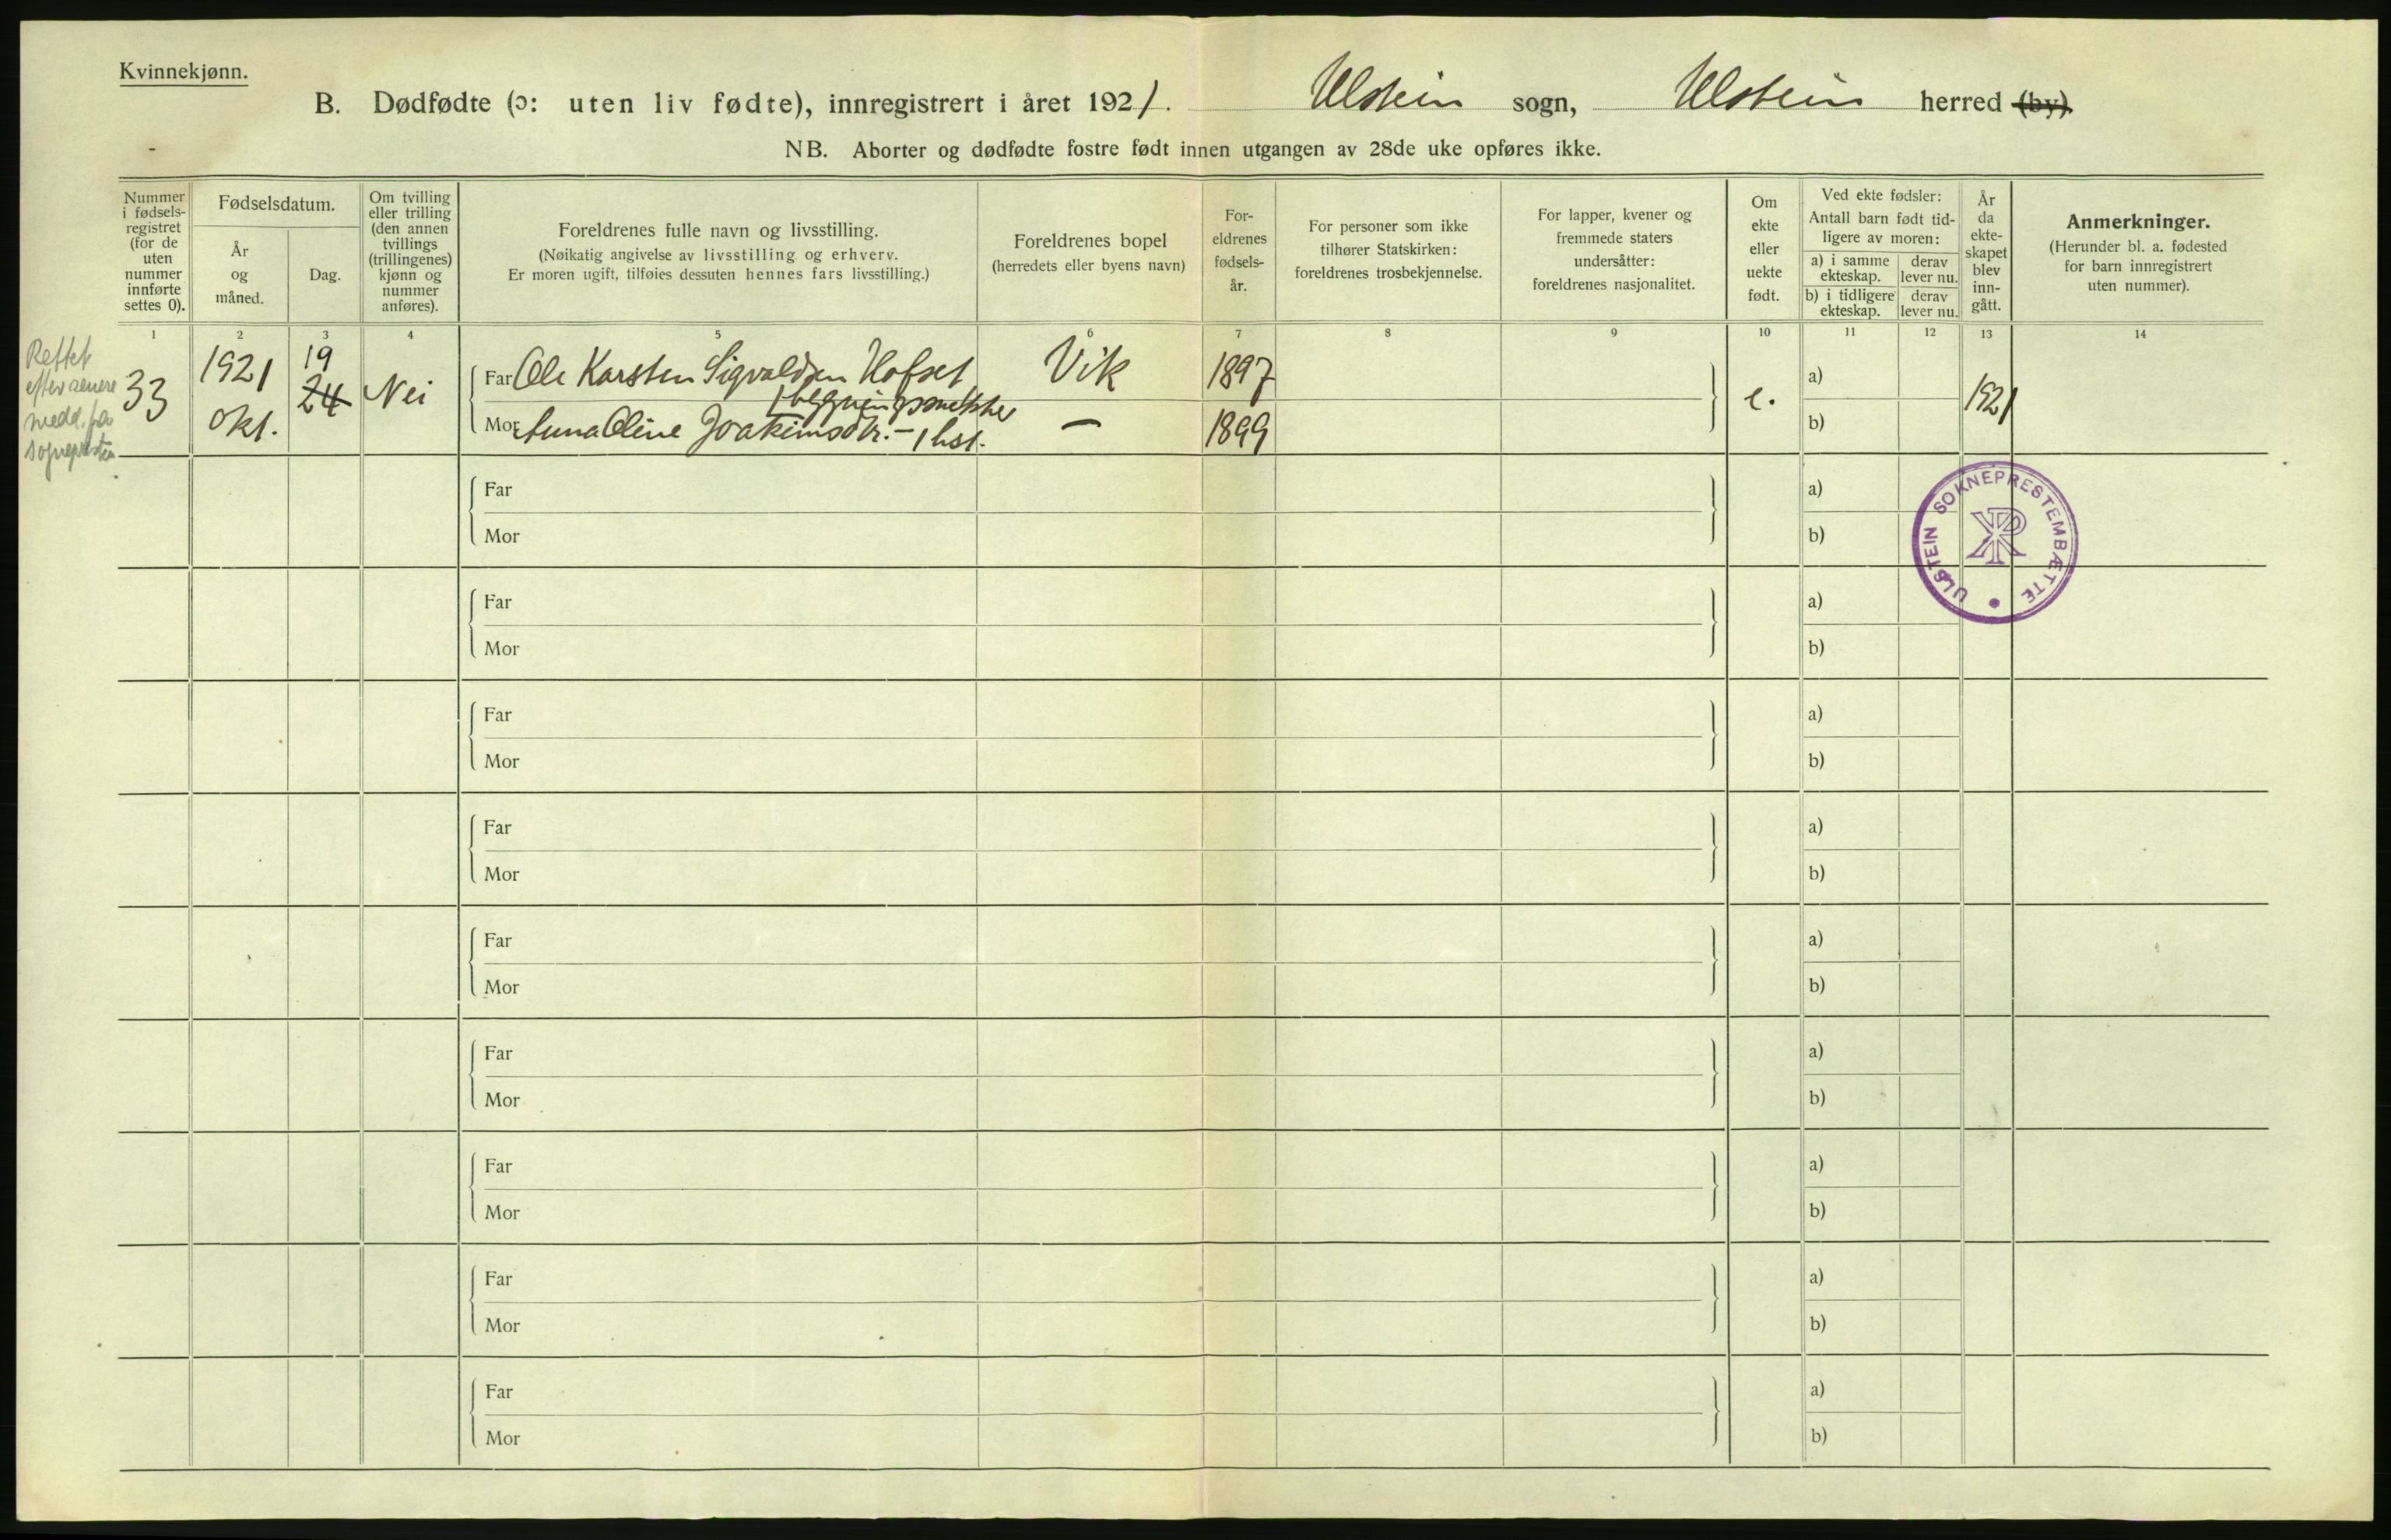 Kvinnekjønn.
B. Dødfødte (ɔ: uten liv fødte), innregistrert i året 1921. Ulstein sogn, Ulstein herred (by).
NB. Aborter og dødfødte fostre født innen utgangen av 28de uke opføres ikke.
Nummer i fødsels-registret (for de uten nummer innførte settes 0).
Fødselsdatum.
År og måned.
Dag.
Om tvilling eller trilling (den annen tvillings (trillingenes) kjønn og nummer anføres).
Foreldrenes fulle navn og livsstilling.
(Nøikatig angivelse av livsstilling og erhverv.
Er moren ugift, tilføies dessuten hennes fars livsstilling.)
Foreldrenes bopel
(herredets eller byens navn)
For-eldrenes fødsels-år.
For personer som ikke tilhører Statskirken: foreldrenes trosbekjennelse.
For lapper, kvener og fremmede staters undersåtter: foreldrenes nasjonalitet.
Om ekte eller uekte født.
Ved ekte fødsler:
Antall barn født tid-ligere av moren:
a) i samme ekteskap.
derav lever nu.
b) i tidligere ekteskap.
derav lever nu.
År da ekte-skapet blev inn-gått.
Anmerkninger.
(Herunder bl. a. fødested for barn innregistrert uten nummer).
1 2 3 4 5 6 7 8 9 10 11 12 13 14
Rettet
efter senere
medd. fra
sognepresten
33
1921
okt.
19
24
Nei
Far Ole Karsten Sigvaldsen Hofset
bygningssnekker
Mor Anna Oline Joakimsdtr. - hst.
Vik
—
1897
1899
e.
a)
b)
1921
Far
Mor
a)
b)
ULSTEIN SOKNEPRESTEMBÆTTE
Far
Mor
a)
b)
Far
Mor
a)
b)
Far
Mor
a)
b)
Far
Mor
a)
b)
Far
Mor
a)
b)
Far
Mor
a)
b)
Far
Mor
a)
b)
Far
Mor
a)
b)